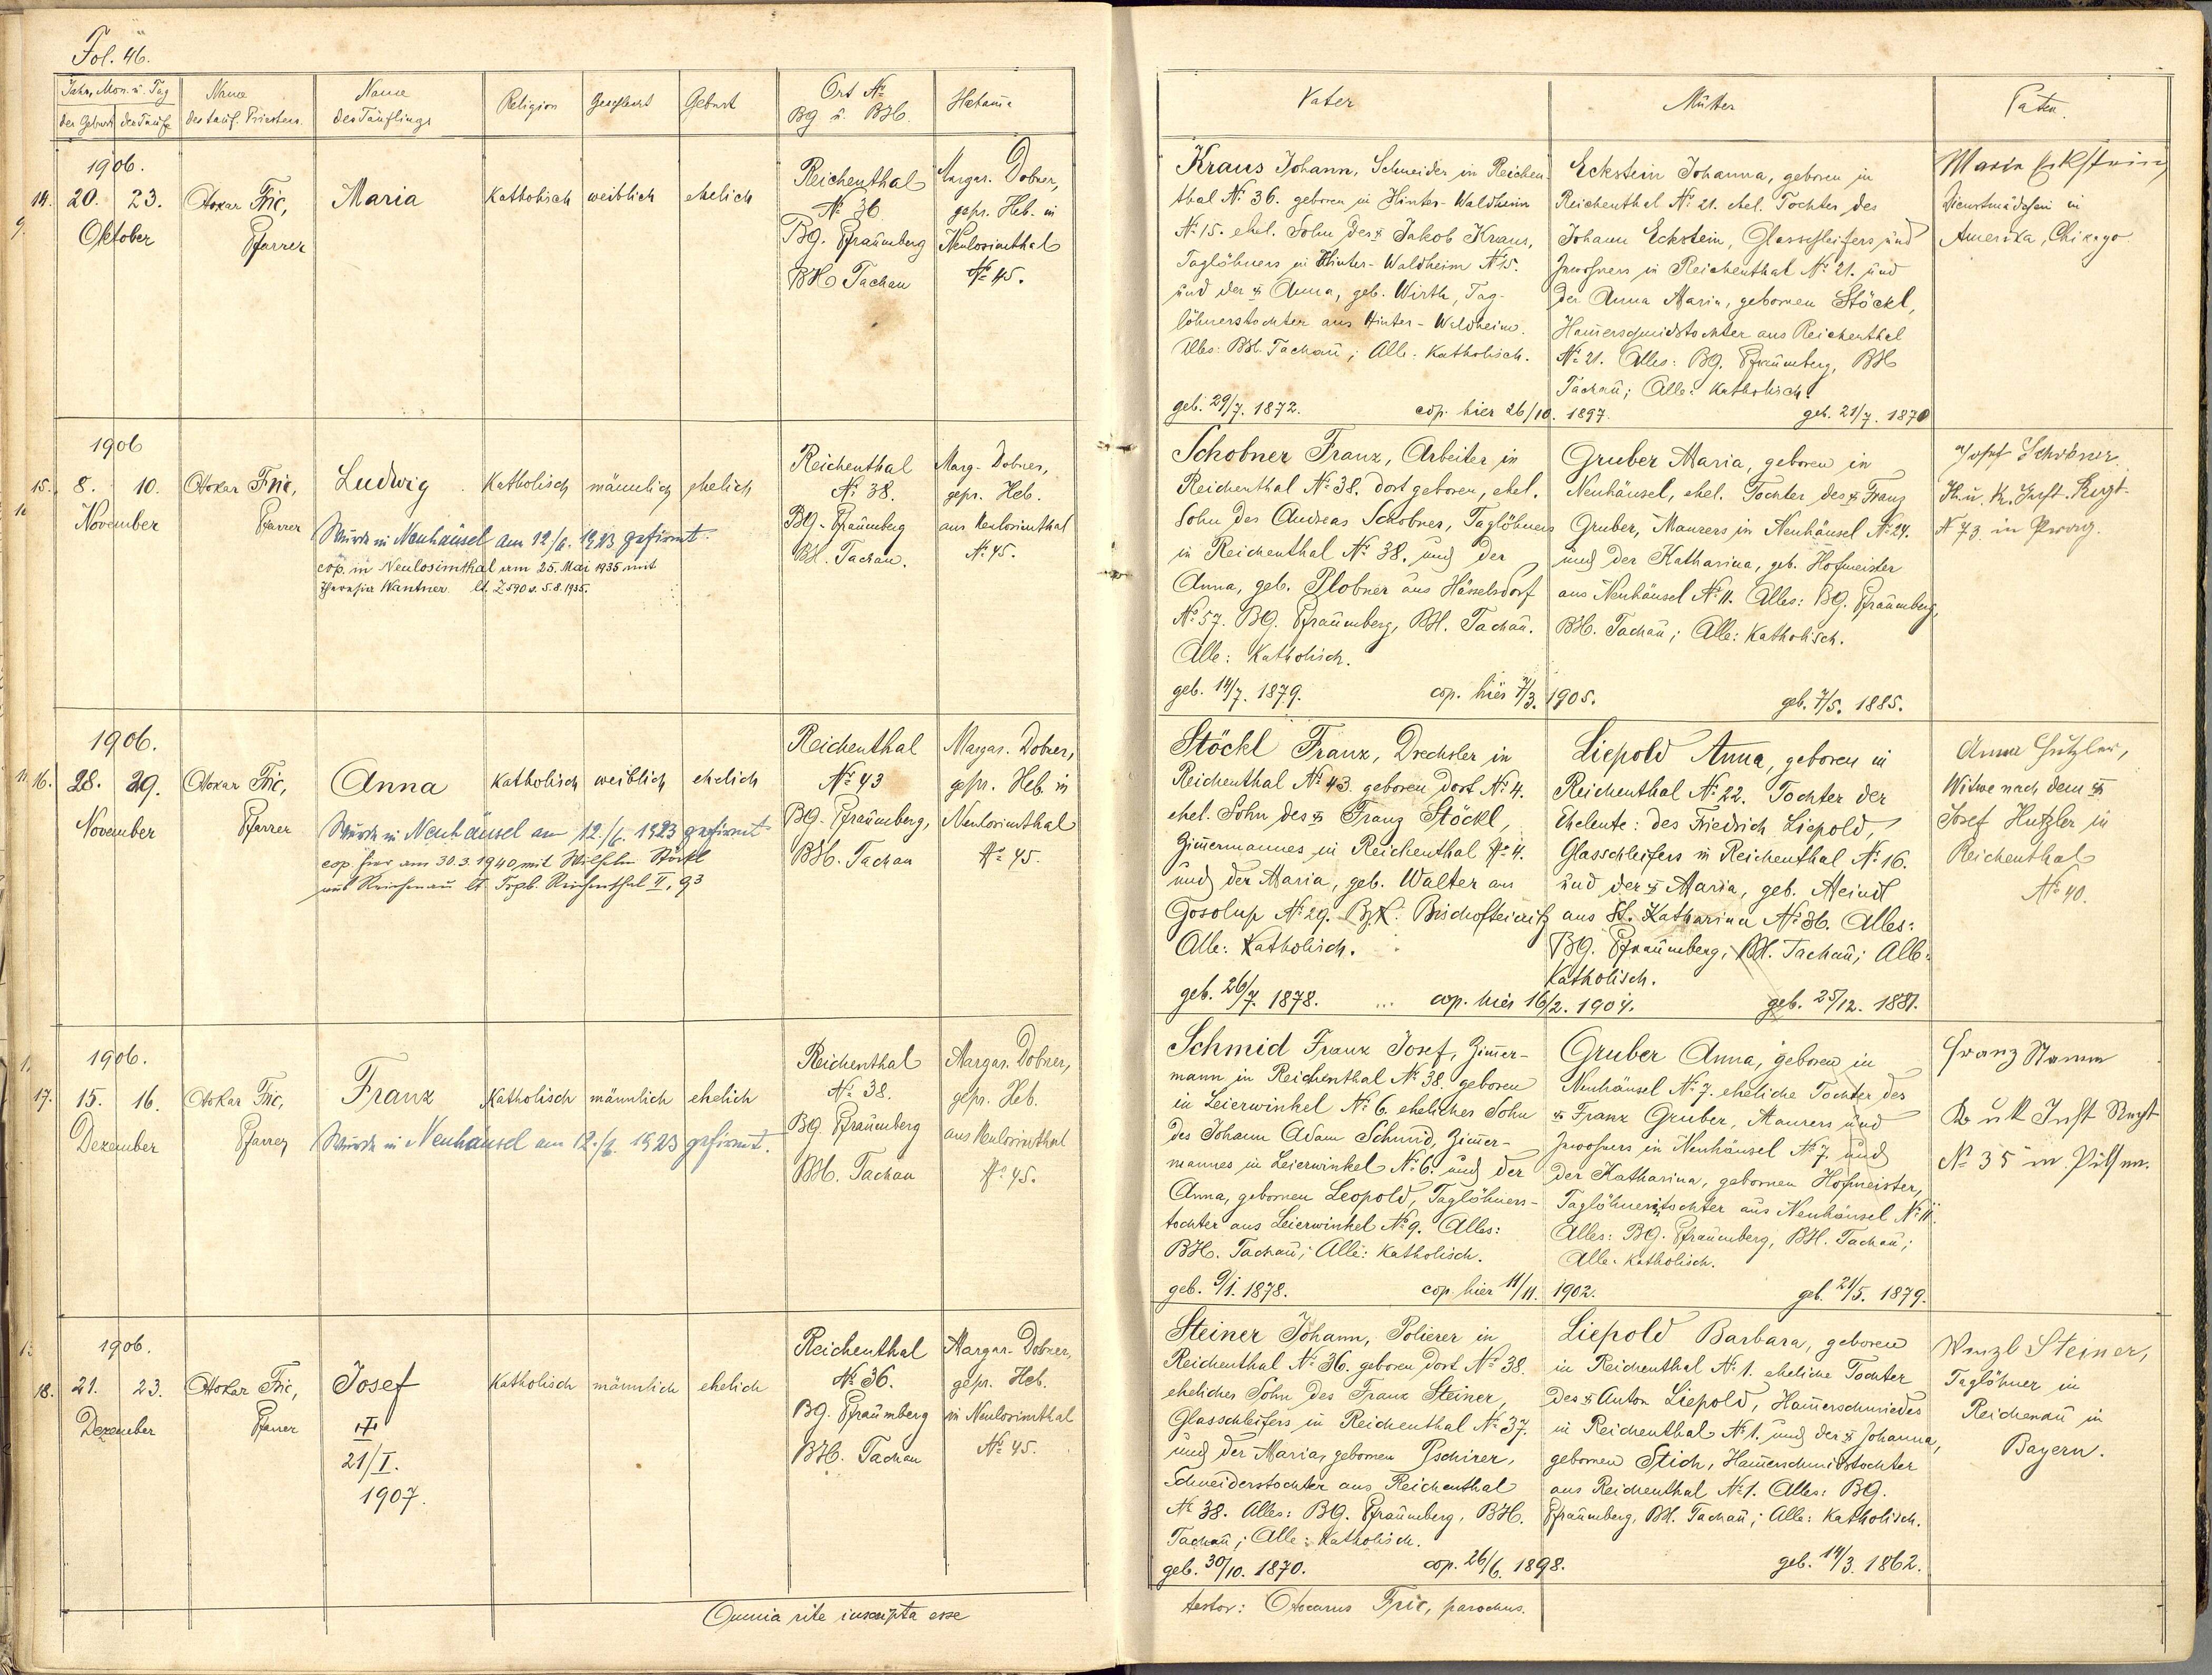 Fol. 46.
Jahr, Mon. u. Tag
der Geburt der Taufe
Name
des tauf. Priesters.
Name
des Täuflings
Religion
Geschlecht
Geburt
Ort No
BG u. BH.
Hebame
Vater
Mutter
Paten.
1906.
14.
9.
20. 23.
Oktober
Otokar Fric,
Pfarrer
Maria
Katholisch
weiblich
ehelich
Reichenthal
No 36
BG. Pfraumberg
BH Tachau
Margar. Dobner,
gepr. Heb. in
Neulosimthal
No 45.
Kraus Johann, Schneider in Reichen-
thal No 36. geboren in Hinter-Waldheim
No 15. ehel. Sohn des ⚔ Jakob Kraus,
Taglöhners in Hinter-Waldheim No 15.
und der ⚔ Anna, geb. Wirth, Tag-
löhnerstochter aus Hinter-Waldheim.
Alles: BH. Tachau; Alle: Katholisch.
geb. 29/7. 1872.
cop. hier 26/10. 1897.
Eckstein Johanna, geboren in
Reichenthal No 21. ehel. Tochter des
Johann Eckstein, Glasschleifers und
Inwohners in Reichenthal No 21. und
der Anna Maria, gebornen Stöckl,
Hamerschmidstochter aus Reichenthal
No 21. Alles: BG. Pfraumberg, BH
Tachau; Alle: Katholisch.
geb. 21/7. 1870
Maria Eckstein,
Dienstmädchen in
Amerika, Chikago.
1906
15.
10
8. 10.
November
Otokar Fric,
Pfarrer
Ludwig
Wurde in Neuhäusel am 12/6. 1923 gefirmt.
cop. in Neulosimthal am 25. Mai 1935 mit
Theresia Wantner lt. Z 590 v. 5.8.1935.
Katholisch
männlich
ehelich
Reichenthal
No 38.
BG. Pfraumberg
BH. Tachau.
Marg. Dobner,
gepr. Heb.
aus Neulosimthal
No 45.
Schobner Franz, Arbeiter in
Reichenthal No 38. dort geboren, ehel.
Sohn des Andreas Schobner, Taglöhners
in Reichenthal No 38. und der
Anna, geb. Plobner aus Hässelsdorf
No 57. BG. Pfraumberg, BH. Tachau.
Alle: Katholisch.
geb. 14/7. 1879.
cop. hier 7/3. 1905.
Gruber Maria, geboren in
Neuhäusel, ehel. Tochter des ⚔ Franz
Gruber, Maurers in Neuhäusel No 24.
und der Katharina, geb. Hofmeister
aus Neuhäusel No 11. Alles: BG. Pfraumberg,
BH. Tachau; Alle: Katholisch.
geb. 7/5. 1885.
Josef Schobner
K. u. K. Inft. Regt.
N 73 in Prag.
1906.
11 16.
28. 29.
November
Otokar Fric,
Pfarrer
Anna
Wurde in Neuhäusel am 12./6. 1923 gefirmt
cop. hier am 30.3.1940 mit Wilhelm Stöckl
aus Reichenau lt. Trgb. Reichenthal II, 93
Katholisch
weiblich
ehelich
Reichenthal
No 43
BG. Pfraumberg,
BH. Tachau
Margar. Dobner,
gepr. Heb. in
Neulosimthal
No 45.
Stöckl Franz, Drechsler in
Reichenthal No 43. geboren dort No 4.
ehel. Sohn des ⚔ Franz Stöckl,
Zimmermannes in Reichenthal No 4.
und der Maria, geb. Walter aus
Gosolup No 29. BH: Bischofteinitz
Alle: Katholisch.
geb. 26/7. 1878.
cop. hier 16/2. 1904.
Liepold Anna, geboren in
Reichenthal No 22. Tochter der
Eheleute: des Friedrich Liepold,
Glasschleifers in Reichenthal No 16.
und der ⚔ Maria, geb. Meindl
aus St. Katharina No 36. Alles:
BG. Pfraumberg, BH. Tachau; Alle:
Katholisch.
geb. 25/12. 1881.
Anna Hutzler,
Witwe nach dem ⚔
Josef Hutzler in
Reichenthal
No 40.
1906.
17.
15. 16.
Dezember
Otokar Fric,
Pfarrer
Franz
Wurde in Neuhäusel am 12./6. 1923 gefirmt.
Katholisch
männlich
ehelich
Reichenthal
No 38.
BG. Pfraumberg
BH. Tachau
Margar. Dobner,
gepr. Heb.
aus Neulosimthal
No 45.
Schmid Franz Josef, Zimmer-
mann in Reichenthal No 38. geboren
in Leierwinkel No 6. ehelicher Sohn
des Johann Adam Schmid, Zimmer-
mannes in Leierwinkel No 6. und der
Anna, gebornen Leopold, Taglöhners-
tochter aus Leierwinkel No 9. Alles:
BH. Tachau; Alle: Katholisch.
geb. 9/1. 1878.
cop. hier 11/11. 1902.
Gruber Anna, geboren in
Neuhäusel No 7. eheliche Tochter des
⚔ Franz Gruber, Maurers und
Inwohners in Neuhäusel No 7. und
der Katharina, gebornen Hofmeister,
Taglöhnerstochter aus Neuhäusel No 11.
Alles: BG. Pfraumberg, BH. Tachau;
Alle: Katholisch.
geb. 21/5. 1879.
Franz Stamm
K u K Inft Regt
No 35 in Pilsen.
1906.
18.
21. 23.
Dezember
Otokar Fric,
Pfarrer
Josef
21/I.
1907.
Katholisch
männlich
ehelich
Reichenthal
No 36.
BG. Pfraumberg
BH. Tachau
Margar. Dobner,
gepr. Heb.
in Neulosimthal
No 45.
Steiner Johann, Polierer in
Reichenthal No 36. geboren dort No 38.
ehelicher Sohn des Franz Steiner,
Glasschleifers in Reichenthal No 37.
und der Maria, gebornen Pschirer,
Schneiderstochter aus Reichenthal
No 38. Alles: BG. Pfraumberg, BH.
Tachau; Alle: Katholisch.
geb. 30/10. 1870.
cop. 26/6. 1898.
Liepold Barbara, geboren
in Reichenthal No 1. eheliche Tochter
des ⚔ Anton Liepold, Hamerschmiedes
in Reichenthal No 1. und der ⚔ Johanna,
gebornen Stich, Hamerschmidstochter
aus Reichenthal No 1. Alles: BG.
Pfraumberg, BH. Tachau; Alle: Katholisch.
geb. 14/3. 1862.
Wenzl Steiner,
Taglöhner in
Reichenau in
Bayern.
Omnia rite inscripta esse
testor: Otocarus Fric, parochus.